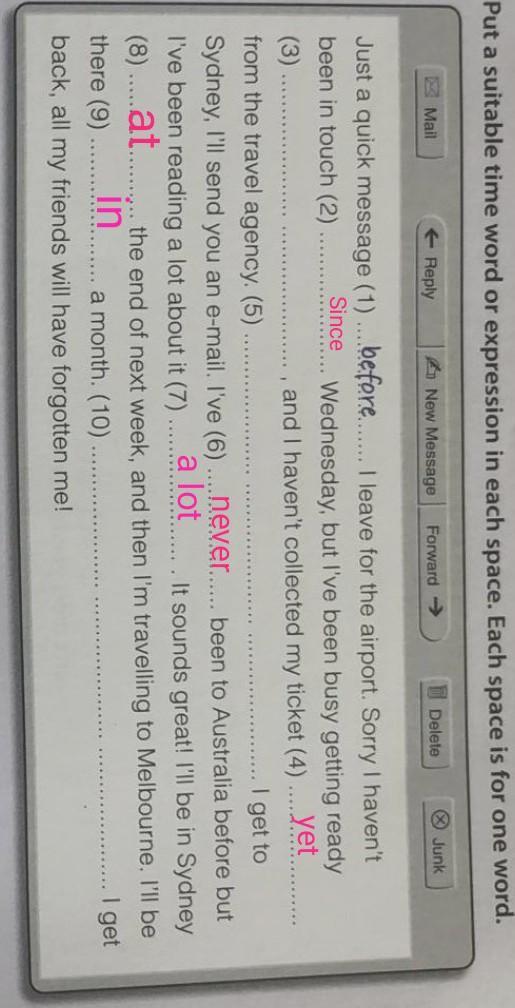 Put a suitable time word or expression in each space. Each space is for one word.
Mail Reply New Message Forward Delete Junk
Just a quick message (1) ....before...... I leave for the airport. Sorry I haven't
been in touch (2) ......Since...... Wednesday, but I've been busy getting ready
(3) .................... ...................., and I haven't collected my ticket (4) ....yet............
from the travel agency. (5) .................... .................... .................... I get to
Sydney, I'll send you an e-mail. I've (6) ....never...... been to Australia before but
I've been reading a lot about it (7) ......a lot...... . It sounds great! I'll be in Sydney
(8) .....at.......... the end of next week, and then I'm travelling to Melbourne. I'll be
there (9) ........in........ a month. (10) .................... .................... .................... I get
back, all my friends will have forgotten me!